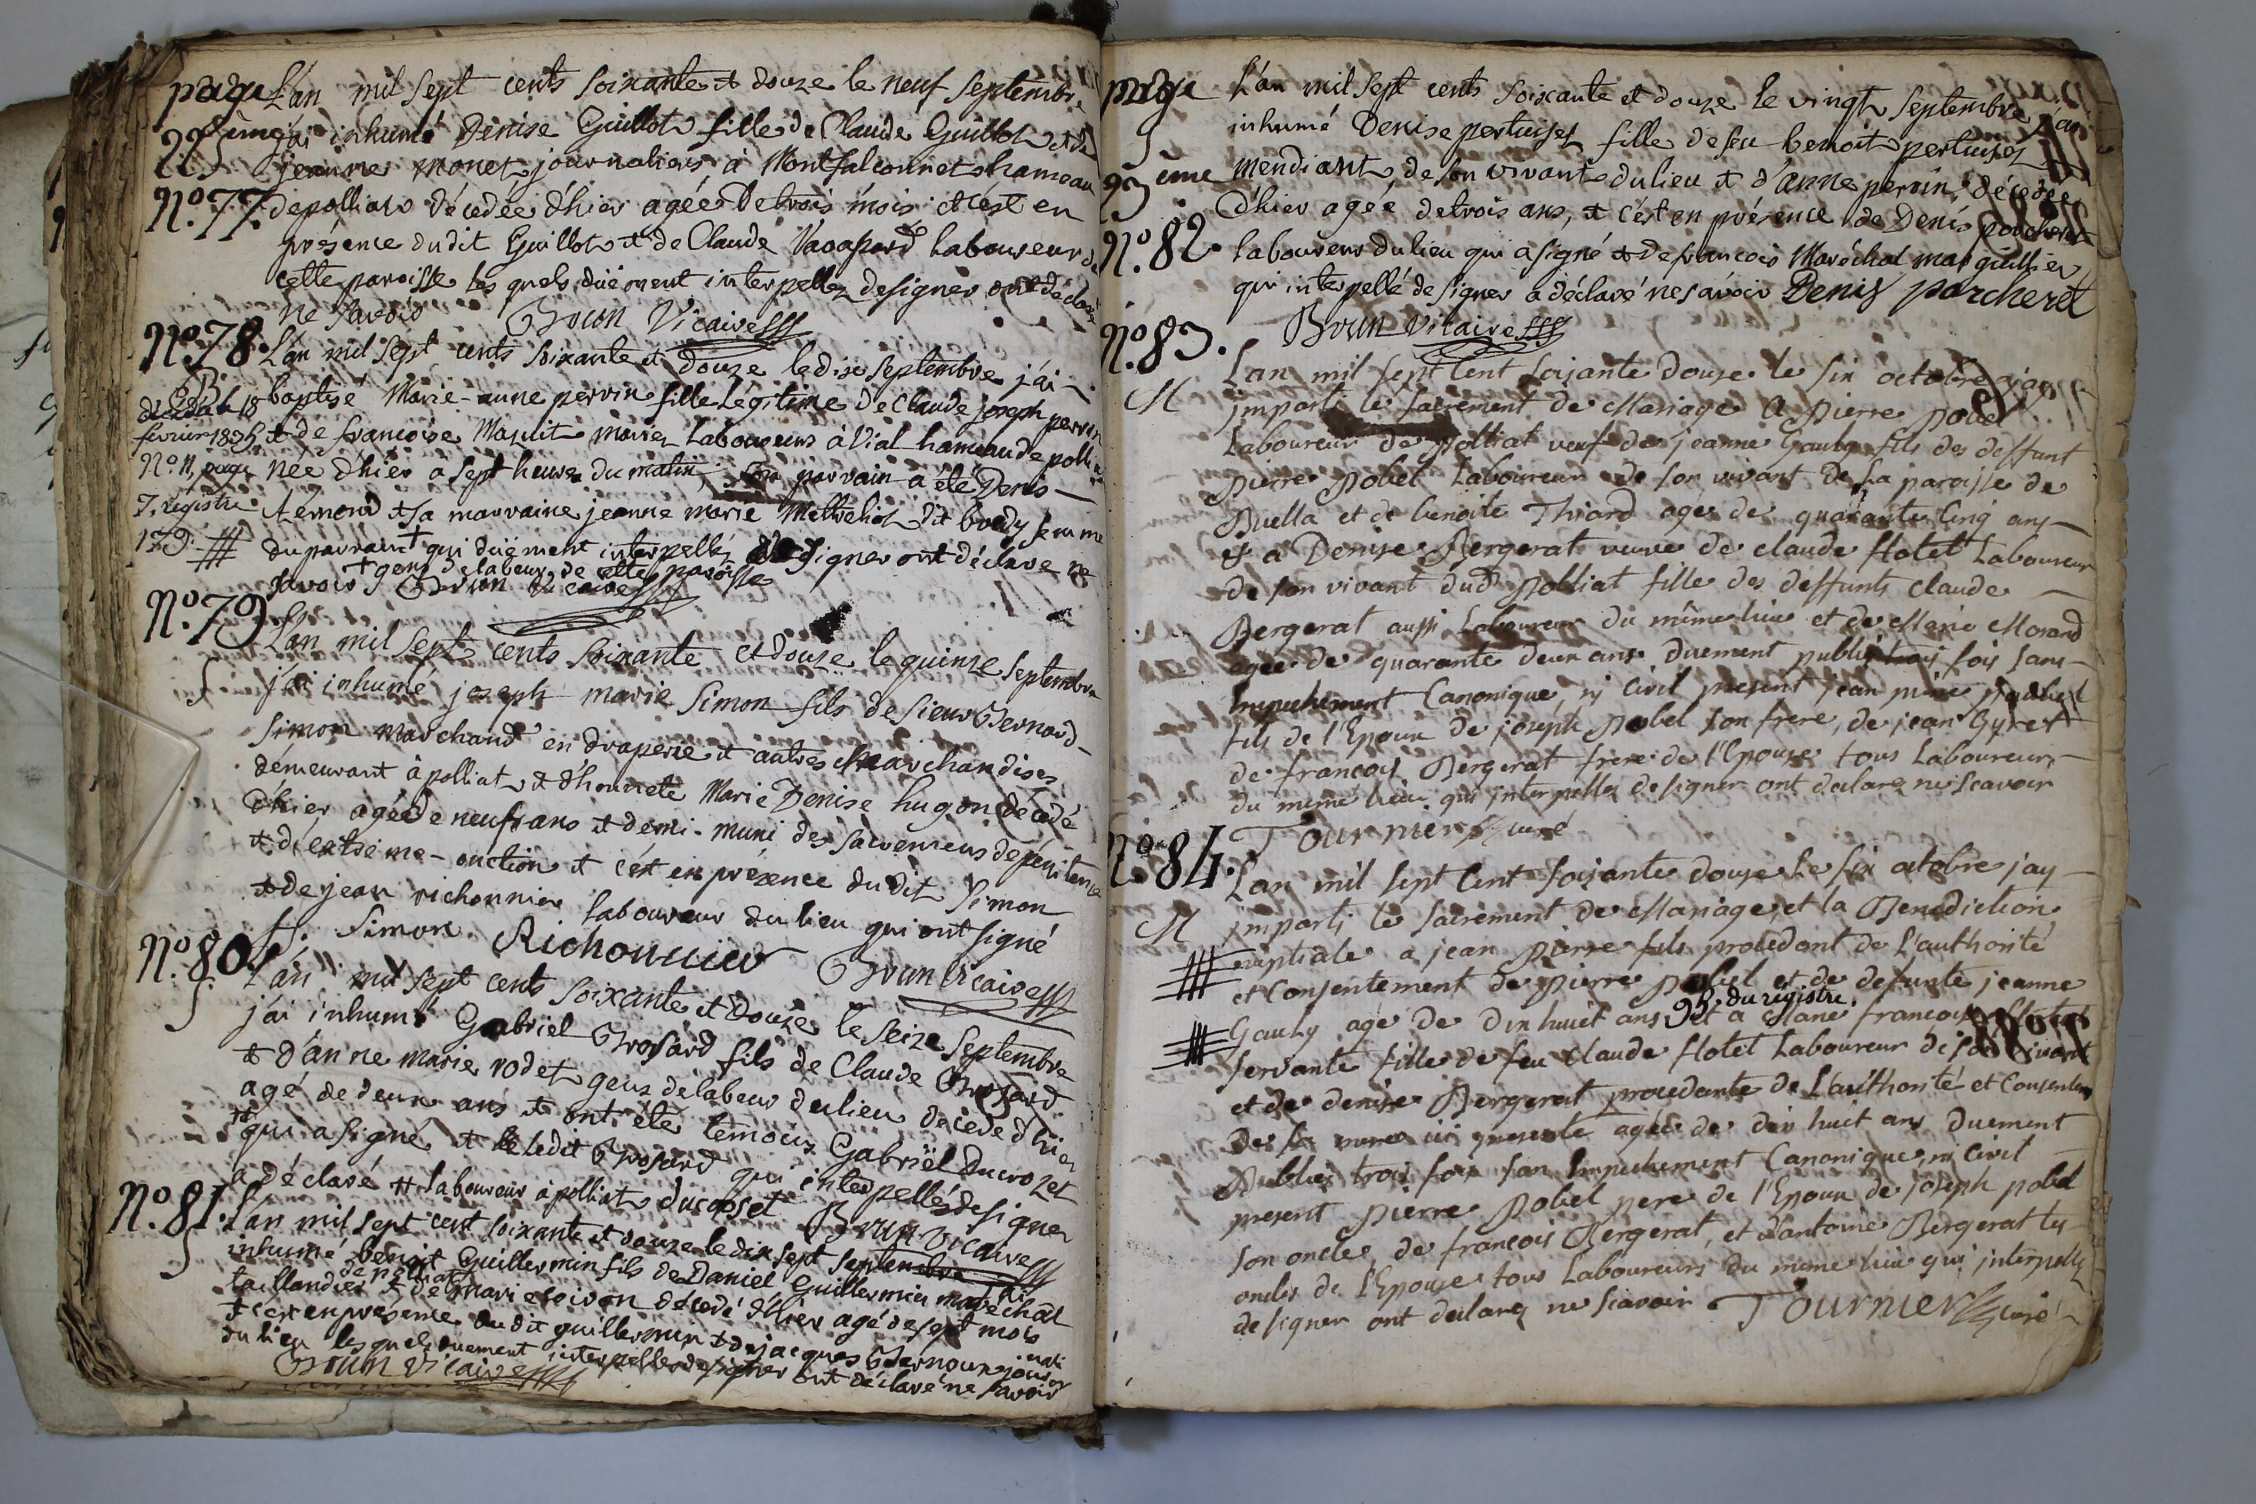 page L'an mil sept cents soixante et douze le neuf septembre
22ème j'ai inhumé Denise Guillot fille de Claude Guillot et de
jeanne monet journaliers à Montfalconnet hameau
N.o 77. de polliat décedée d'hier agée de trois mois et c'est en
présence dudit Guillot et de Claude Vacapard Laboureur de
cette paroisse les quels düement interpellez de signer ont déclaré
ne savoir Brun Vicaire
N.o 78. L'an mil sept cents soixante et douze le dix septembre j'ai
B baptisé Marie-anne perrin fille légitime de Claude joseph perrin
décédée le 18 février 1835, et de francoise Mapuit mariez Laboureurs à Vial hameau de polliat
N.o 11, page née d'hier à sept heures du matin, son parrain a été Denis
7. registre Lemond et sa marraine jeanne marie Metheliot dit boudy femme
179. du parrain + qui düement interpellés de signer ont déclaré ne
savoir + gens de labeur de cette paroisse Brun Vicaire
N.o 79 L'an mil sept cents soixante et douze le quinze septembre
S j'ai inhumé joseph marie Simon fils de sieur Bernard
Simon marchand en draperie et autres marchandises
démeurant à polliat et d'honnete Marie Denise hugon décedé
d'hier agé de neuf ans et demi muni des sacremens de pénitence
et d'extrème-onction et c'est en présence dudit Simon
et de jean richonnier laboureur du lieu qui ont signé
Simon Richonnier Brun Vicaire
N.o 80. L'an mil sept cents soixante et douze le seize septembre
S j'ai inhumé Gabriel Brosard fils de Claude Brosard
et d'anne marie rodet gens de labeur du lieu décédé d'hier
agé de deux ans et ont été temoins Gabriël Ducrozet
++ qui a signé et ledit Brosard qui interpellé de signer
a déclaré ++ laboureur à polliat ducroset Brun Vicaire
N.o 81. L'an mil sept cent soixante et douze le dix sept septembre j'ai
S inhumé benoit Guillermin fils de Daniel Guillermin maréchal
taillandier de polliat et de marie soivon décedé d'hier agé de sept mois
et c'est en présence dudit guillermin et de jacques Bernoux journalier
du lieu les quels duement interpellés de signer ont déclaré ne savoir
Brun Vicaire
page L'an mil sept cents soixante et douze le vingt septembre j'ai
inhumé Denise pertuiset fille de feu benoit pertuiset
23ème mendiant de son vivant du lieu et d'anne perrin, décedée
d'hier agée de trois ans, et c'est en présence de Denis porcheret
N.o 82. laboureur du lieu qui a signé et de francois Maréchal marguillier
qui interpellé de signer a déclaré ne savoir Denis porcheret
N.o 83. Brun Vicaire
L'an mil sept cent soixante douze le six octobre j'ay
M imparti le sacrement de Mariage a Pierre pobel
Laboureur de Polliat veuf de jeanne Gauly fils des deffunt
Pierre Pobel Laboureur de son vivant de La paroisse de
Buella et de benoite Thiard agé de quarante Cinq ans
et a Denise Bergerat veuve de claude flotet Laboureur
de son vivant dud Polliat fille des deffunts claude
Bergerat aussi Laboureur du même lieu et de Marie Morand
agée de quarante deux ans duement publiés trois fois sans
Impechement Canonique ny Civil present jean pierre pobel
fils de l'Epoux de joseph Pobel son frere, de jean Gyret
de francois Bergerat frere de l'Epouse tous Laboureurs
du meme lieu qui interpellez de signer ont declaré ne scavoir
Tournier curé
N.o 84. L'an mil sept Cent soixante douze Le six octobre j'ay
M imparti le sacrement de Mariage et la Benediction
nuptiale a jean Pierre fils procedant de L'authorité
et Consentement de Pierre Pobel et de defunte jeanne
95. du registre.
Gauly age de dix huit ans et a Marie francoise flotet
servante fille de feu claude flotet Laboureur de son vivant
et de denise Bergerat procedante de L'authorité et Consentement
de sa mere ici presente agée de dix huit ans Duement
Publiés trois fois sans Impechement Canonique ny Civil
present Pierre Pobel pere de l'Epoux de joseph pobel
son oncle, de francois Bergerat, et d'antoine Bergerat les
oncles de L'Epouse tous Laboureurs du meme lieu qui interpellez
de signer ont declaré ne scavoir Tournier curé